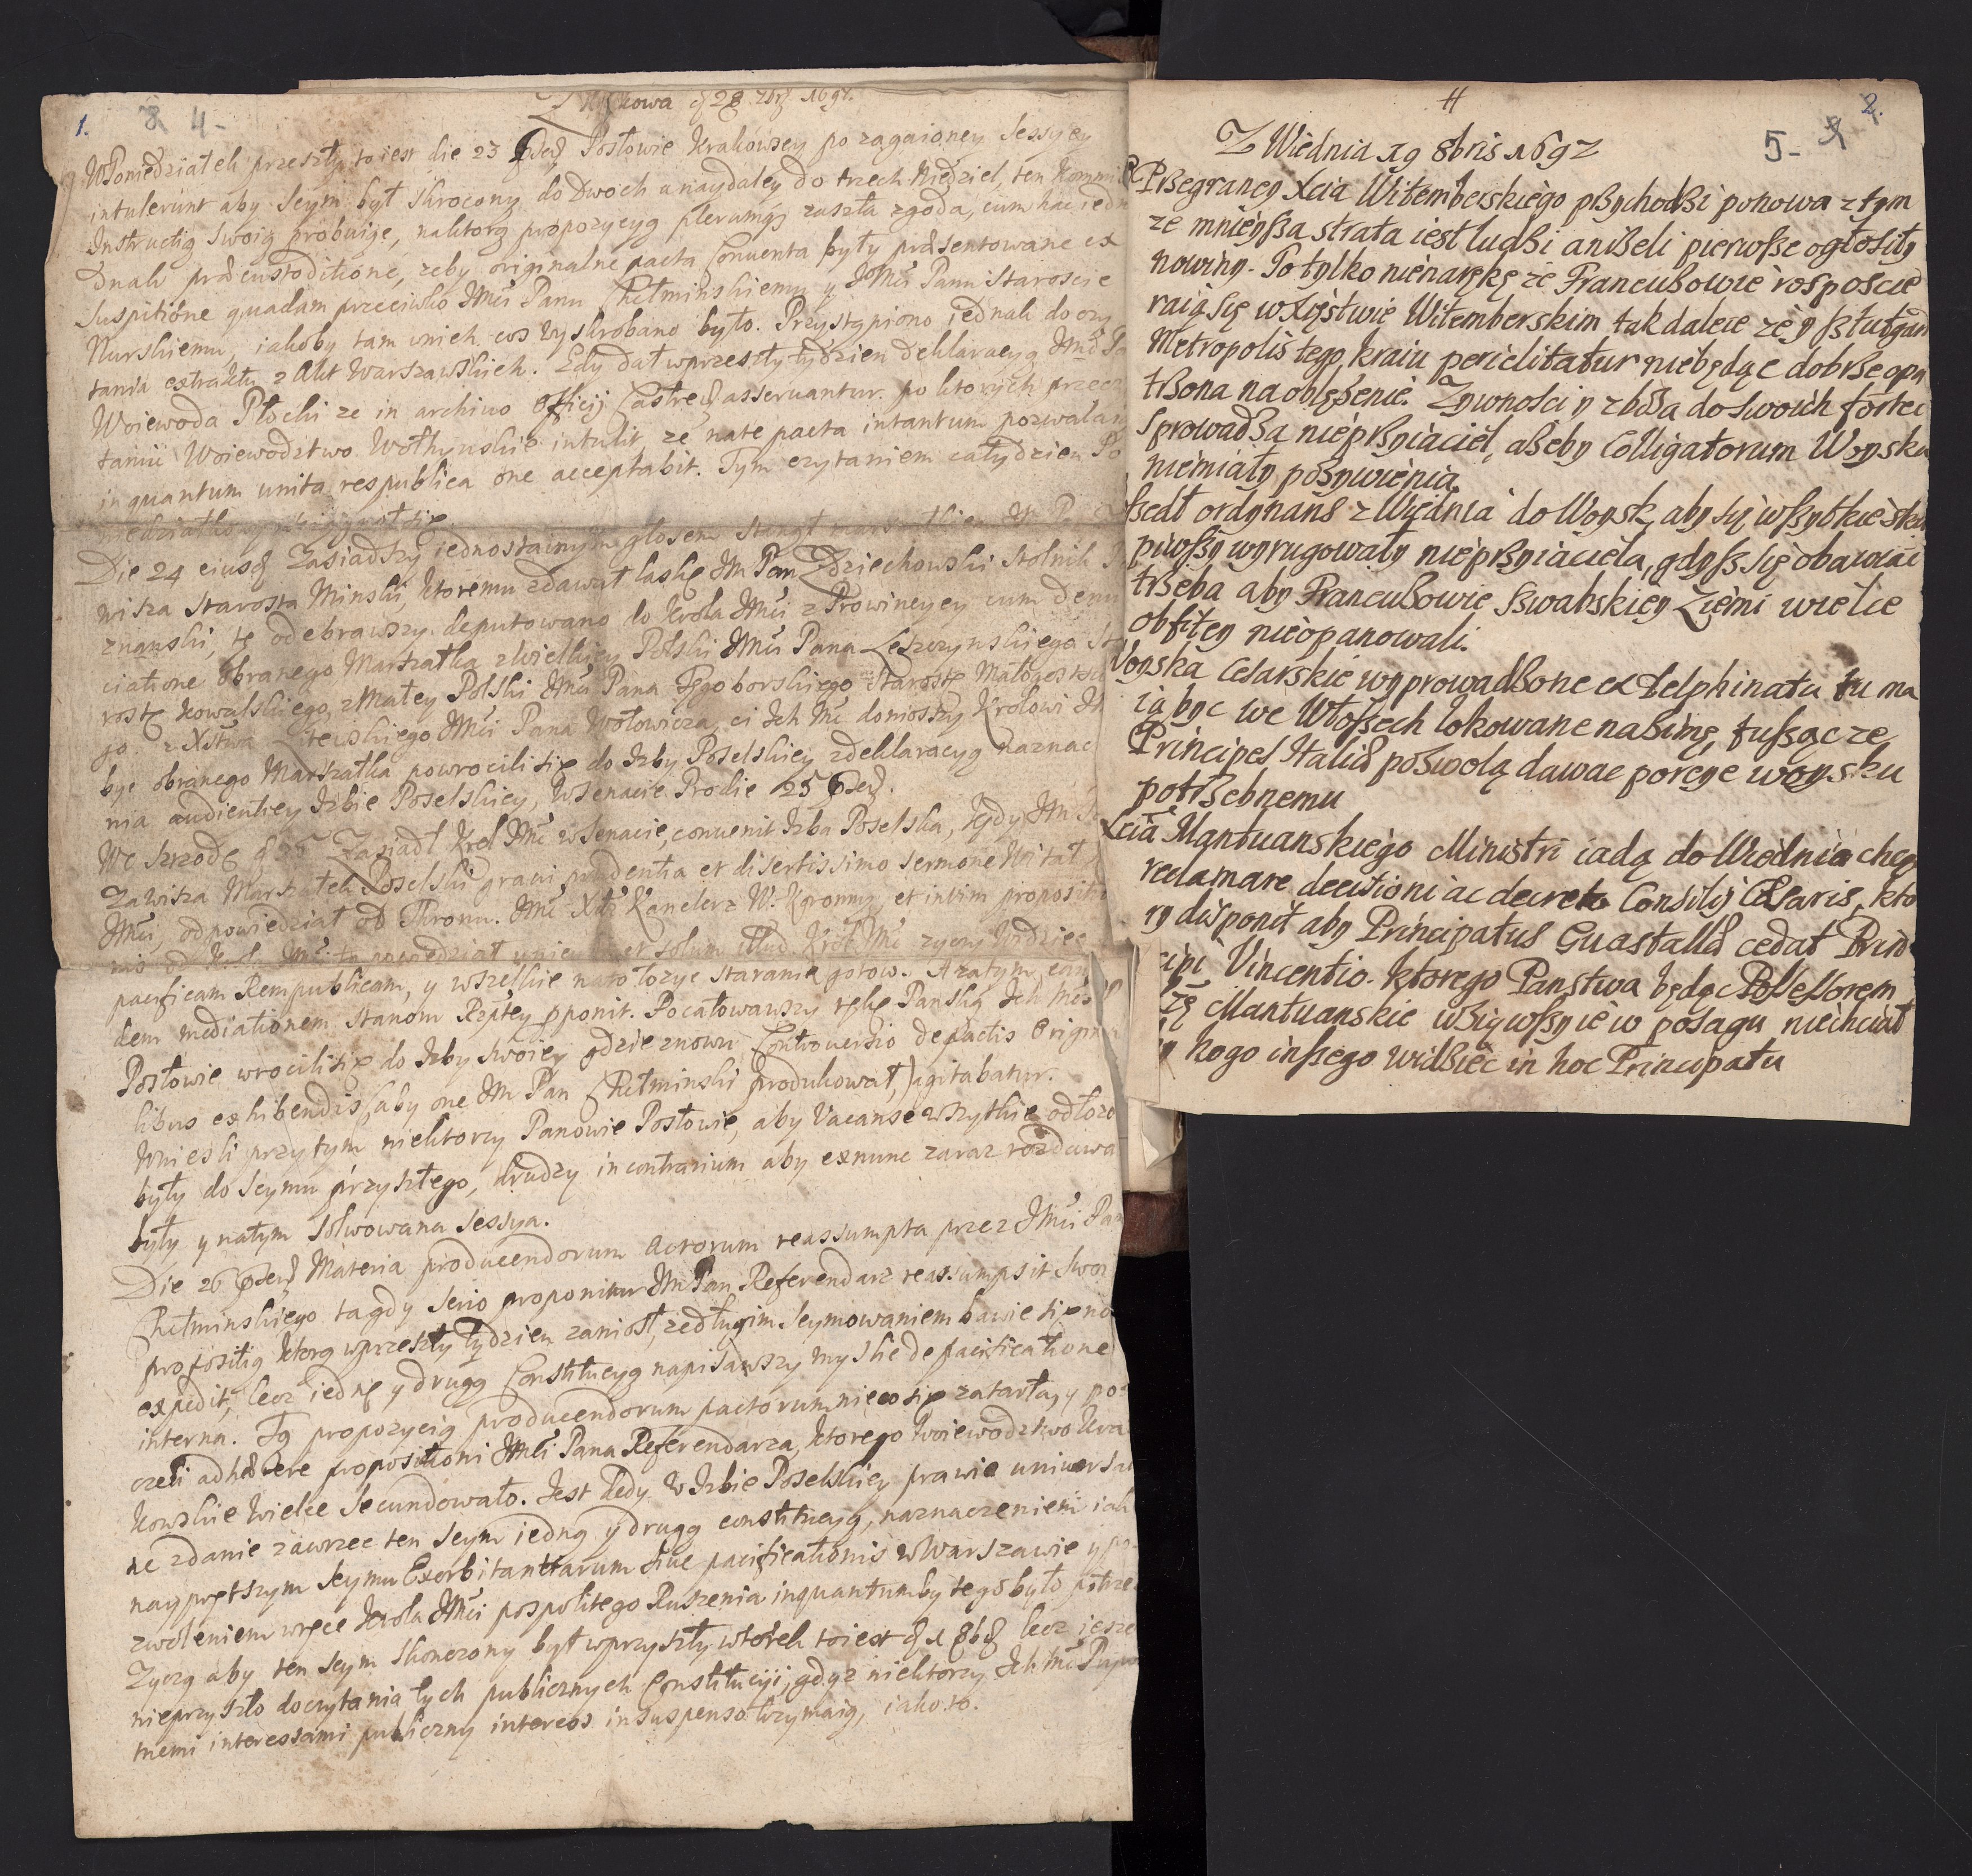 1. 8 4-
Krakowa d 28 7brs 1697.
W Poniedziałek przeszły to iest die 23 Posłowie Krakowscy po zagaioney Sessyey
intulerunt aby Seym był skrocony do Dwoch a naydaley do trzech Niedziel, ten Kommi
Instructią Swoią probuiąc, na ktorą propozycyą plerumqs zaszła zgoda, cum hac iedn
dnak præcustoditione, zeby originalne pacta Conventa były præsentowane ex
Suspitione quadam przeciwko JMci Panu Chełminskiemu y JMci Panu Staroscie
Nurskiemu, iakoby tam w nich cos wyskrobano było. Przystąpiono iednak do czy
tania extraktu z Akt Warszawskich. Edy dał w przeszły tydzien deklaracyą JMć Pa
Woiewoda Płocki ze in archivo Officij Castren asservantur. po ktorych przecz
taniu Woiewodztwo Wołhynskie intulit, ze na te pacta intantum pozwalai
in quantum unita respublica one acceptabit. Tym czytaniem cały dzien Po
Die 24 eiusd Zasiadszy iednostaynym głosem stanął
wisza Starosta Minski, ktoremu zdawał laskę JM Pan Zdziechowski Stolnik P
znanski, tę odebrawszy deputowano do Krola JMci z Prowincyey cum denun
ciatione obranego Marszałka z Wielkiey Polski JMci Pana Leszczynskiego Sta
rostę Kowalskiego, z Małey Polski JMci Pana Tęgoborskiego Starostę Małogoskie
go. z Xstwa Litewskiego JMci Pana Wołowicza, ci Ich Mc donioszy Krolowi JM
bye obranego Marszałka powrocili się do Izby Poselskiey z deklaracyą naznac
nia audientiey Izbie Poselskiey, w Senacie Pro die 25
We szrodę d 25 Zasiadł Krol JMć w Senacie, convenit Izba Poselska, Tędy JM
Zawisza Marszałek Poselski gravi prudentia et disertissimo sermone Witał
JMci, odpowiedział od Thronu. JMć Xdz Kanclerz W. Koronny, et intim propositi
pacificam Rempublicam, y wszelkie na to łożyc staranie gotow. A zatym ean
dem mediationem Stanom Rzptey pponit. Pocałowawszy rękę Pańską Ich Mcs P
Posłowie wrocili się do Izby swoiey gdzie znowu Controversio de pactis Origina
libus exhibendis (aby one JM Pan Chełminski produkował,) agitabatur.
Wniesli przytym niektorzy Panowie Posłowie, aby Vacanse wszytkie odłozo
były do Seymu przyszłego, drudzy in contrarium aby exnunc zaraz rozdawa
były y natym Solwowana Sessya.
Die 26 Materia producendorum Actorum reassumpta przez JMci Pan
Chełminskiego ta gdy serio proponitur JM Pan Referendarz reassumpsit Swoi
propositią ktorą w przeszły tydzien zaniosł, ze długim Seymowaniem bawic się no
expedit, lecz iednę y drugą Constitucyą napisawszy myslic de pacificatione
interna. Tą propozycią producendorum pactorum nieco się zatarła, y po-
czeli adhærere propositioni JMci Pana Referendarza, ktorego Woiewodztwo Kra
kowskie wielce secundowało. Jest tedy w Izbie Poselskiey prawie universal
ne zdanie zawrzec ten Seym iedną y drugą constitucyą, naznaczeniem iak
nayprętszym Seymu Exorbitantiarum Siue pacificationis w Warszawie y po-
zwoleniem wręce Krola JMci pospolitego Ruszenia inquantumby tego było potrze
Zyczą aby ten Seym skonczony był w przyszły wtorek to iest d 1 8br lecz ieszc
nieprzyszło do czytania tych publicznych Constitucyi, gdyz niektorzy Ich Mc Pryw
tnemi interessami publiczny interes in suspenso trzymaią, iako to.
# 2.
5-
Z Wiednia 19 8bris 1692
Przegraney Xcia Witemberskiego przychodzi ponowa z tym
ze mnieyßa strata iest ludzi anißeli pierwsze ogłosiły
nowiny. To tylko nienarękę ze Francußowie rospoście
raią się w Xięstwie Witemberskim tak dalece ze y Sztutgard
Metropolis tego kraiu periclitatur niebędąc dobrze opa
trzona na oblężenie. Zywnosci y zboza do swoich fortec
sprowadza nieprzyiaciel, ażeby Colligatorum Woyska
niemiały pozywienia.
ßedł ordynans z Wiednia do Woysk, aby się wszytkie sku
piwszy wyrugowały nieprzyiaciela, gdyß się obawiac
trzeba aby Francußowie Szwabskiey Ziemi wielce
obfitey nieopanowali.
Woyska Cesarskie wyprowadzone ex Delphinatu tu ma
ią byc we Włoszech lokowane na zimę, tusząc ze
Principes Italiæ pozwolą dawac porcye woysku
potrzebnemu
Xcia Mantuanskiego Ministri iadą do Wiednia chcąc
reclamare decisioni ac decreto Consilij Cæsaris, kto
ry disponit aby Principatus Guastallæ cedat Prin-
cipi Vincentio. ktorego Panstwa będąc Possessorem
Xżę Mantuanskie wziąwszy ie w posagu niechciał
by kogo inszego widziec in hoc Principatu